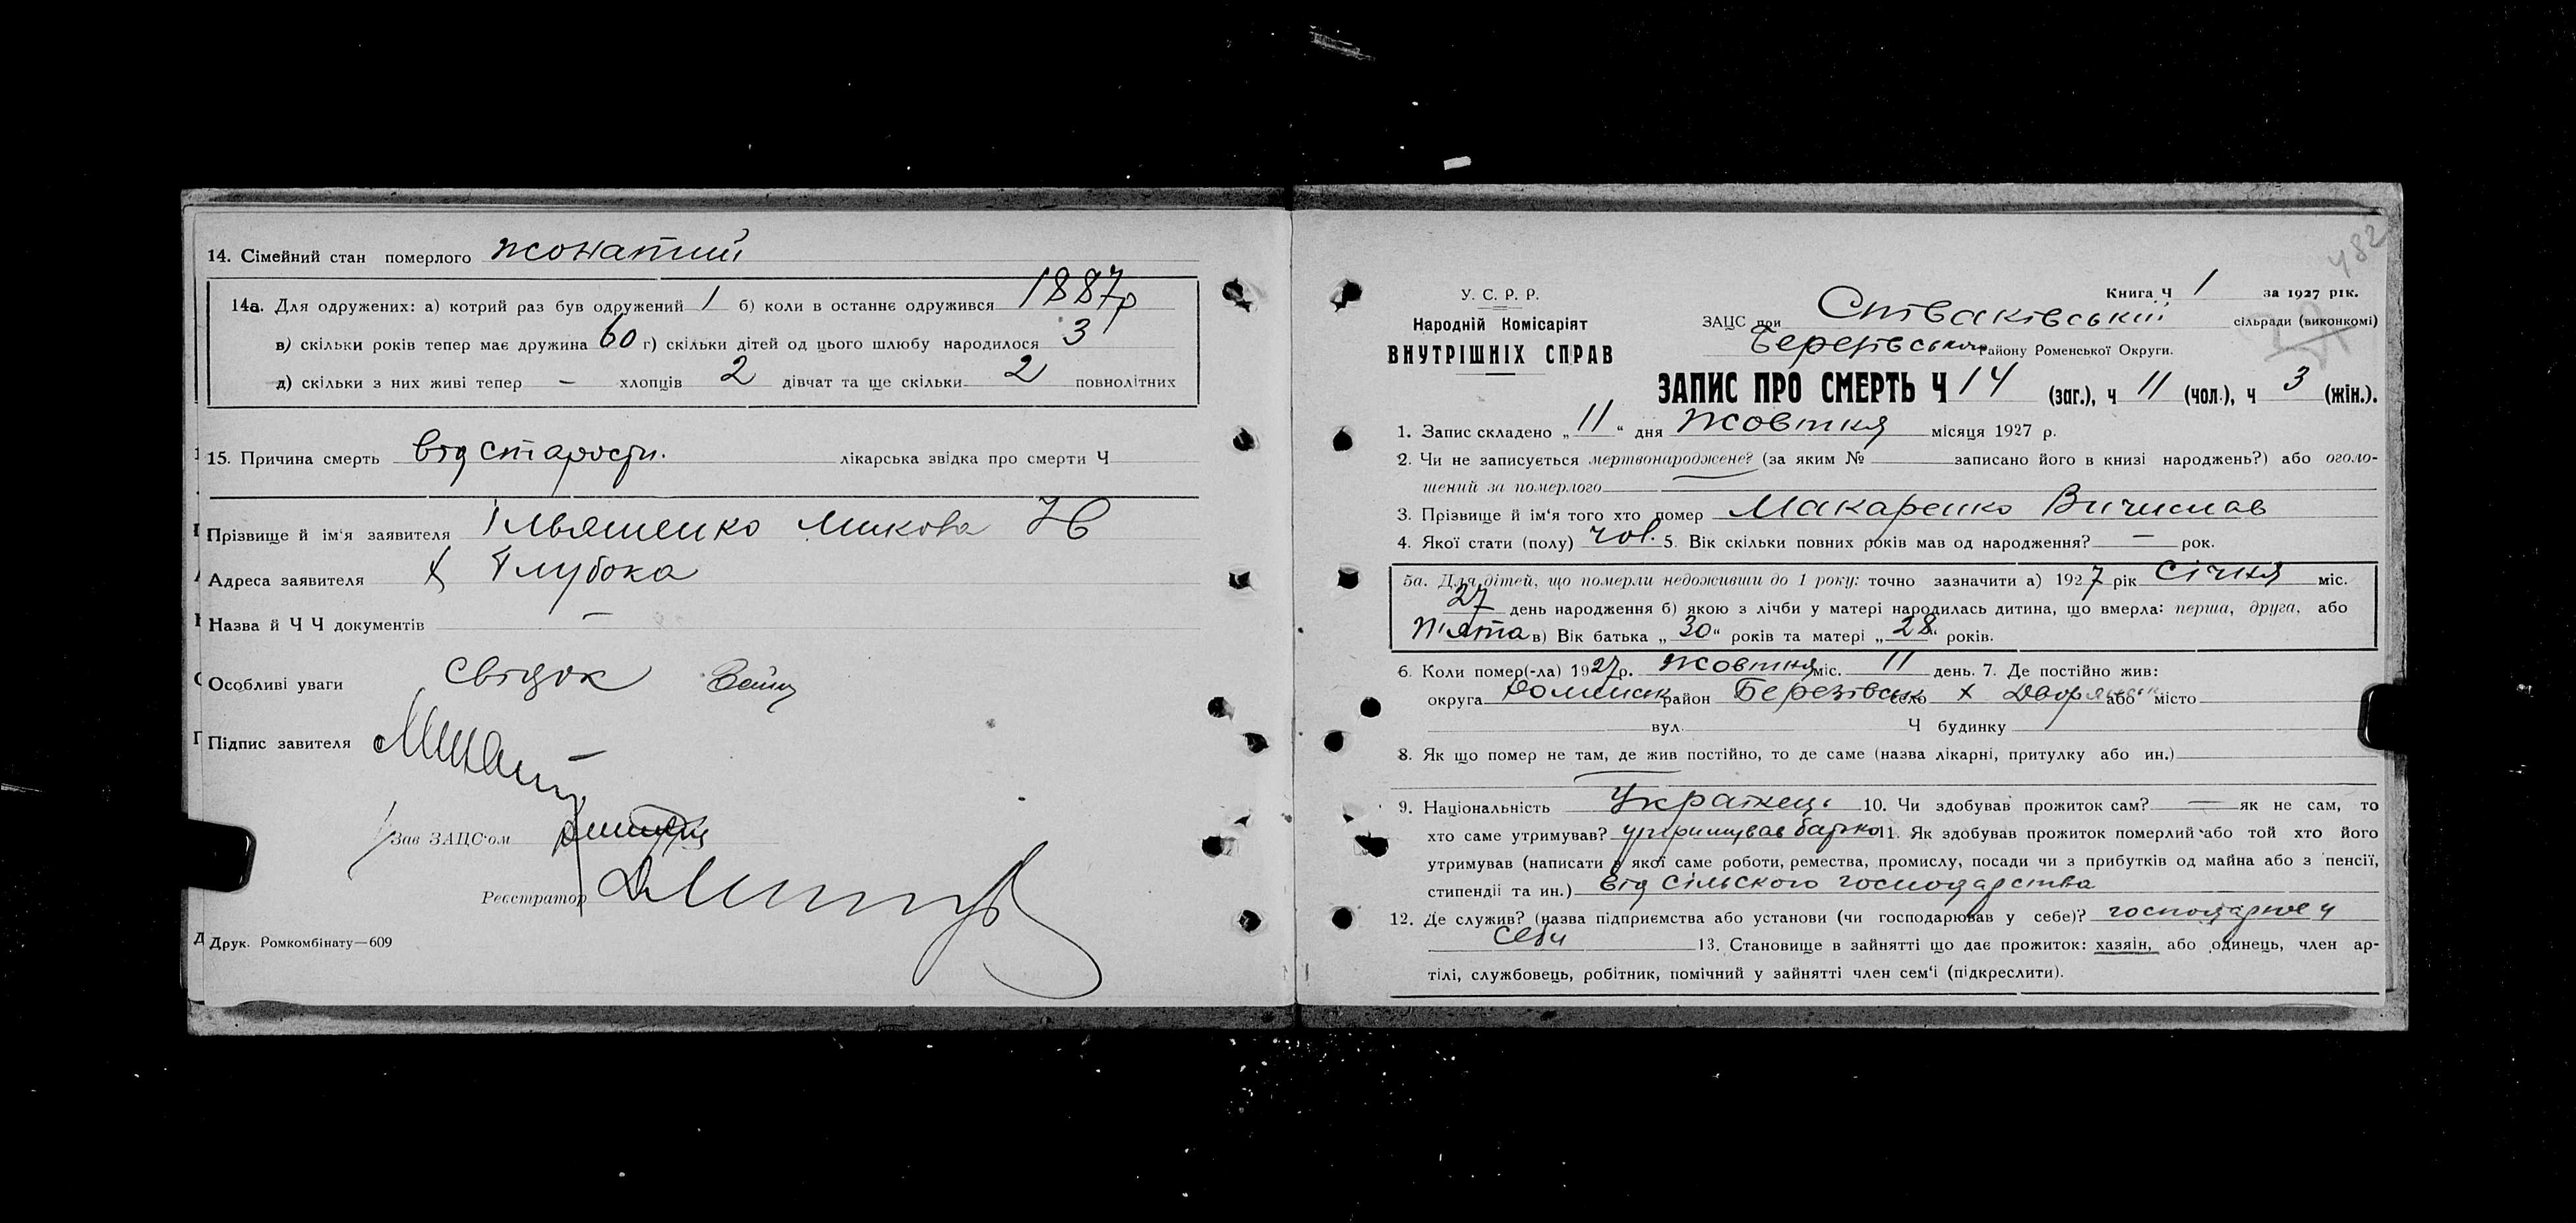 14. Сімейний стан померлого жонатий
14а. Для одружених: а) котрий раз був одружений 1 б) коли в останнє одружився 1887р
в) скільки років тепер має дружина 60 г) скільки дітей од цього шлюбу народилося 3
д) скільки з них живі тепер – хлопців 2 дівчат та ще скільки 2 повнолітних
15. Причина смерть від старости. лікарська звідка про смерти Ч
Прізвище й ім'я заявителя Ільяшенко Микова
Адреса заявителя х Глубока
Назва й Ч Ч документів –
Особливі уваги свідок
Підпис завителя
Зав ЗАЦС'ом
Реєстратор
Друк. Ромкомбінату—609
482
У. С. Р. Р.
Народній Комісаріят
ВНУТРІШНІХ СПРАВ
Книга Ч 1 за 1927 рік.
ЗАЦС при сільради (виконкомі)
Березівського Району Роменської Округи.
ЗАПИС ПРО СМЕРТЬ Ч 14 (заг.), ч 11 (чол.), ч 3 (жін.).
1. Запис складено „11" дня жовтня місяця 1927 р.
2. Чи не записується мертвонароджене? (за яким № записано його в книзі народжень?) або оголо-
шений за померлого
3. Прізвище й ім'я того хто помер Макаренко Вичислав
4. Якої стати (полу) чол. 5. Вік скільки повних років мав од народження? – рок.
5а. Для дітей, що померли недоживши до 1 року: точно зазначити а) 1927 рік Січня міс.
27 день народження б) якою з лічби у матері народилась дитина, що вмерла: перша, друга, або
п'ята в) Вік батька „30" років та матері „28" років.
6. Коли помер(-ла) 1927р. жовтня міс. 11 день. 7. Де постійно жив:
округа Роменск район Березівськ село х або місто
вул. Ч будинку
8. Як що помер не там, де жив постійно, то де саме (назва лікарні, притулку або ин.)
9. Національність Українець 10. Чи здобував прожиток сам? — як не сам, то
хто саме утримував? утримував батько 11. Як здобував прожиток померлий або той хто його
утримував (написати з якої саме роботи, ремества, промислу, посади чи з прибутків од майна або з пенсії,
стипендії та ин.) від сільского господарства
12. Де служив? (назва підприємства або установи (чи господарював у себе)? господарює у
себи 13. Становище в зайнятті що дає прожиток: хазяїн, або одинець, член ар-
тілі, службовець, робітник, помічний у зайнятті член сем'ї (підкреслити).